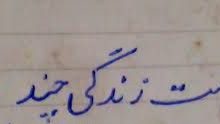 ست زندگی چند